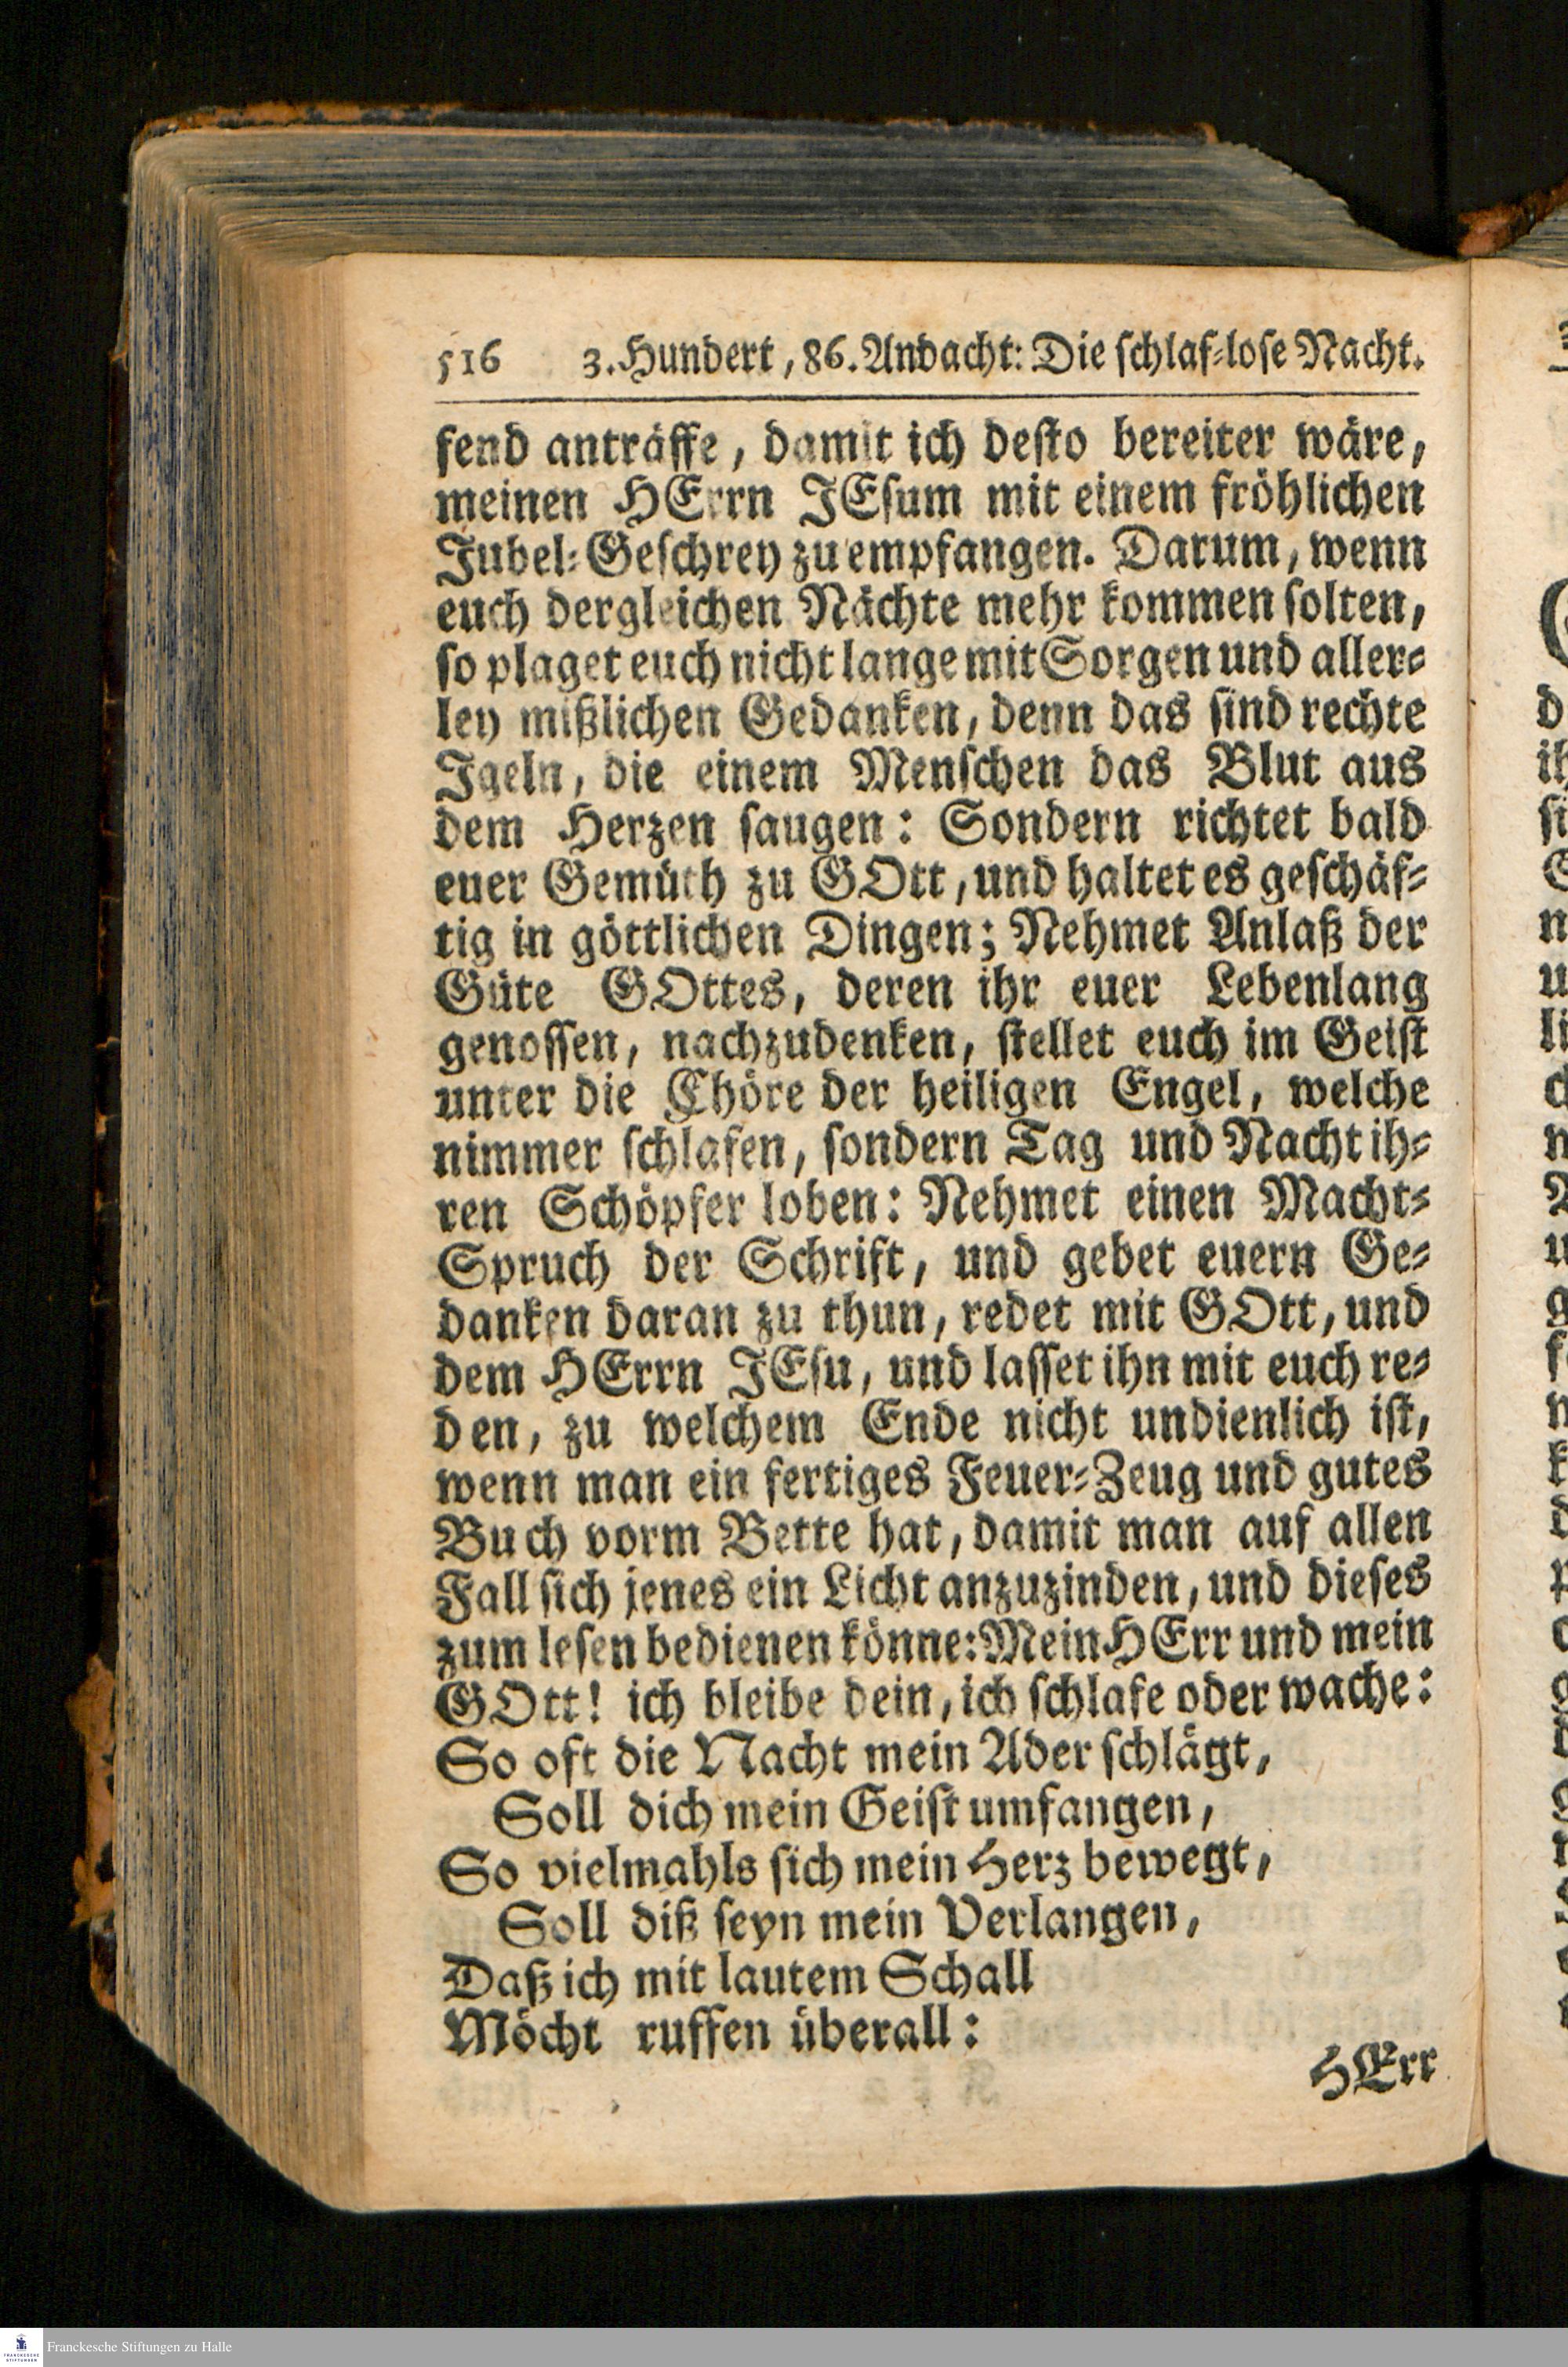 516 3. Hundert, 86. Andacht: Die schlaf-lose Nacht.
fend anträffe, damit ich desto bereiter wäre,
meinen HErrn JEsum mit einem fröhlichen
Jubel-Geschrey zu empfangen. Darum, wenn
euch dergleichen Nächte mehr kommen solten,
so plaget euch nicht lange mit Sorgen und aller-
ley mißlichen Gedanken, denn das sind rechte
Igeln, die einem Menschen das Blut aus
dem Herzen saugen: Sondern richtet bald
euer Gemüth zu GOtt, und haltet es geschäf-
tig in göttlichen Dingen; Nehmet Anlaß der
Güte GOttes, deren ihr euer Lebenlang
genossen, nachzudenken, stellet euch im Geist
unter die Chöre der heiligen Engel, welche
nimmer schlafen, sondern Tag und Nacht ih-
ren Schöpfer loben: Nehmet einen Macht-
Spruch der Schrift, und gebet euern Ge-
danken daran zu thun, redet mit GOtt, und
dem HErrn JEsu, und lasset ihn mit euch re-
den, zu welchem Ende nicht undienlich ist,
wenn man ein fertiges Feuer-Zeug und gutes
Buch vorm Bette hat, damit man auf allen
Fall sich jenes ein Licht anzuzinden, und dieses
zum lesen bedienen könne: Mein HErr und mein
GOtt! ich bleibe dein, ich schlafe oder wache:
So oft die Nacht mein Ader schlägt,
Soll dich mein Geist umfangen,
So vielmahls sich mein Herz bewegt,
Soll diß seyn mein Verlangen,
Daß ich mit lautem Schall
Möcht ruffen überall:
HErr
Franckesche Stiftungen zu Halle